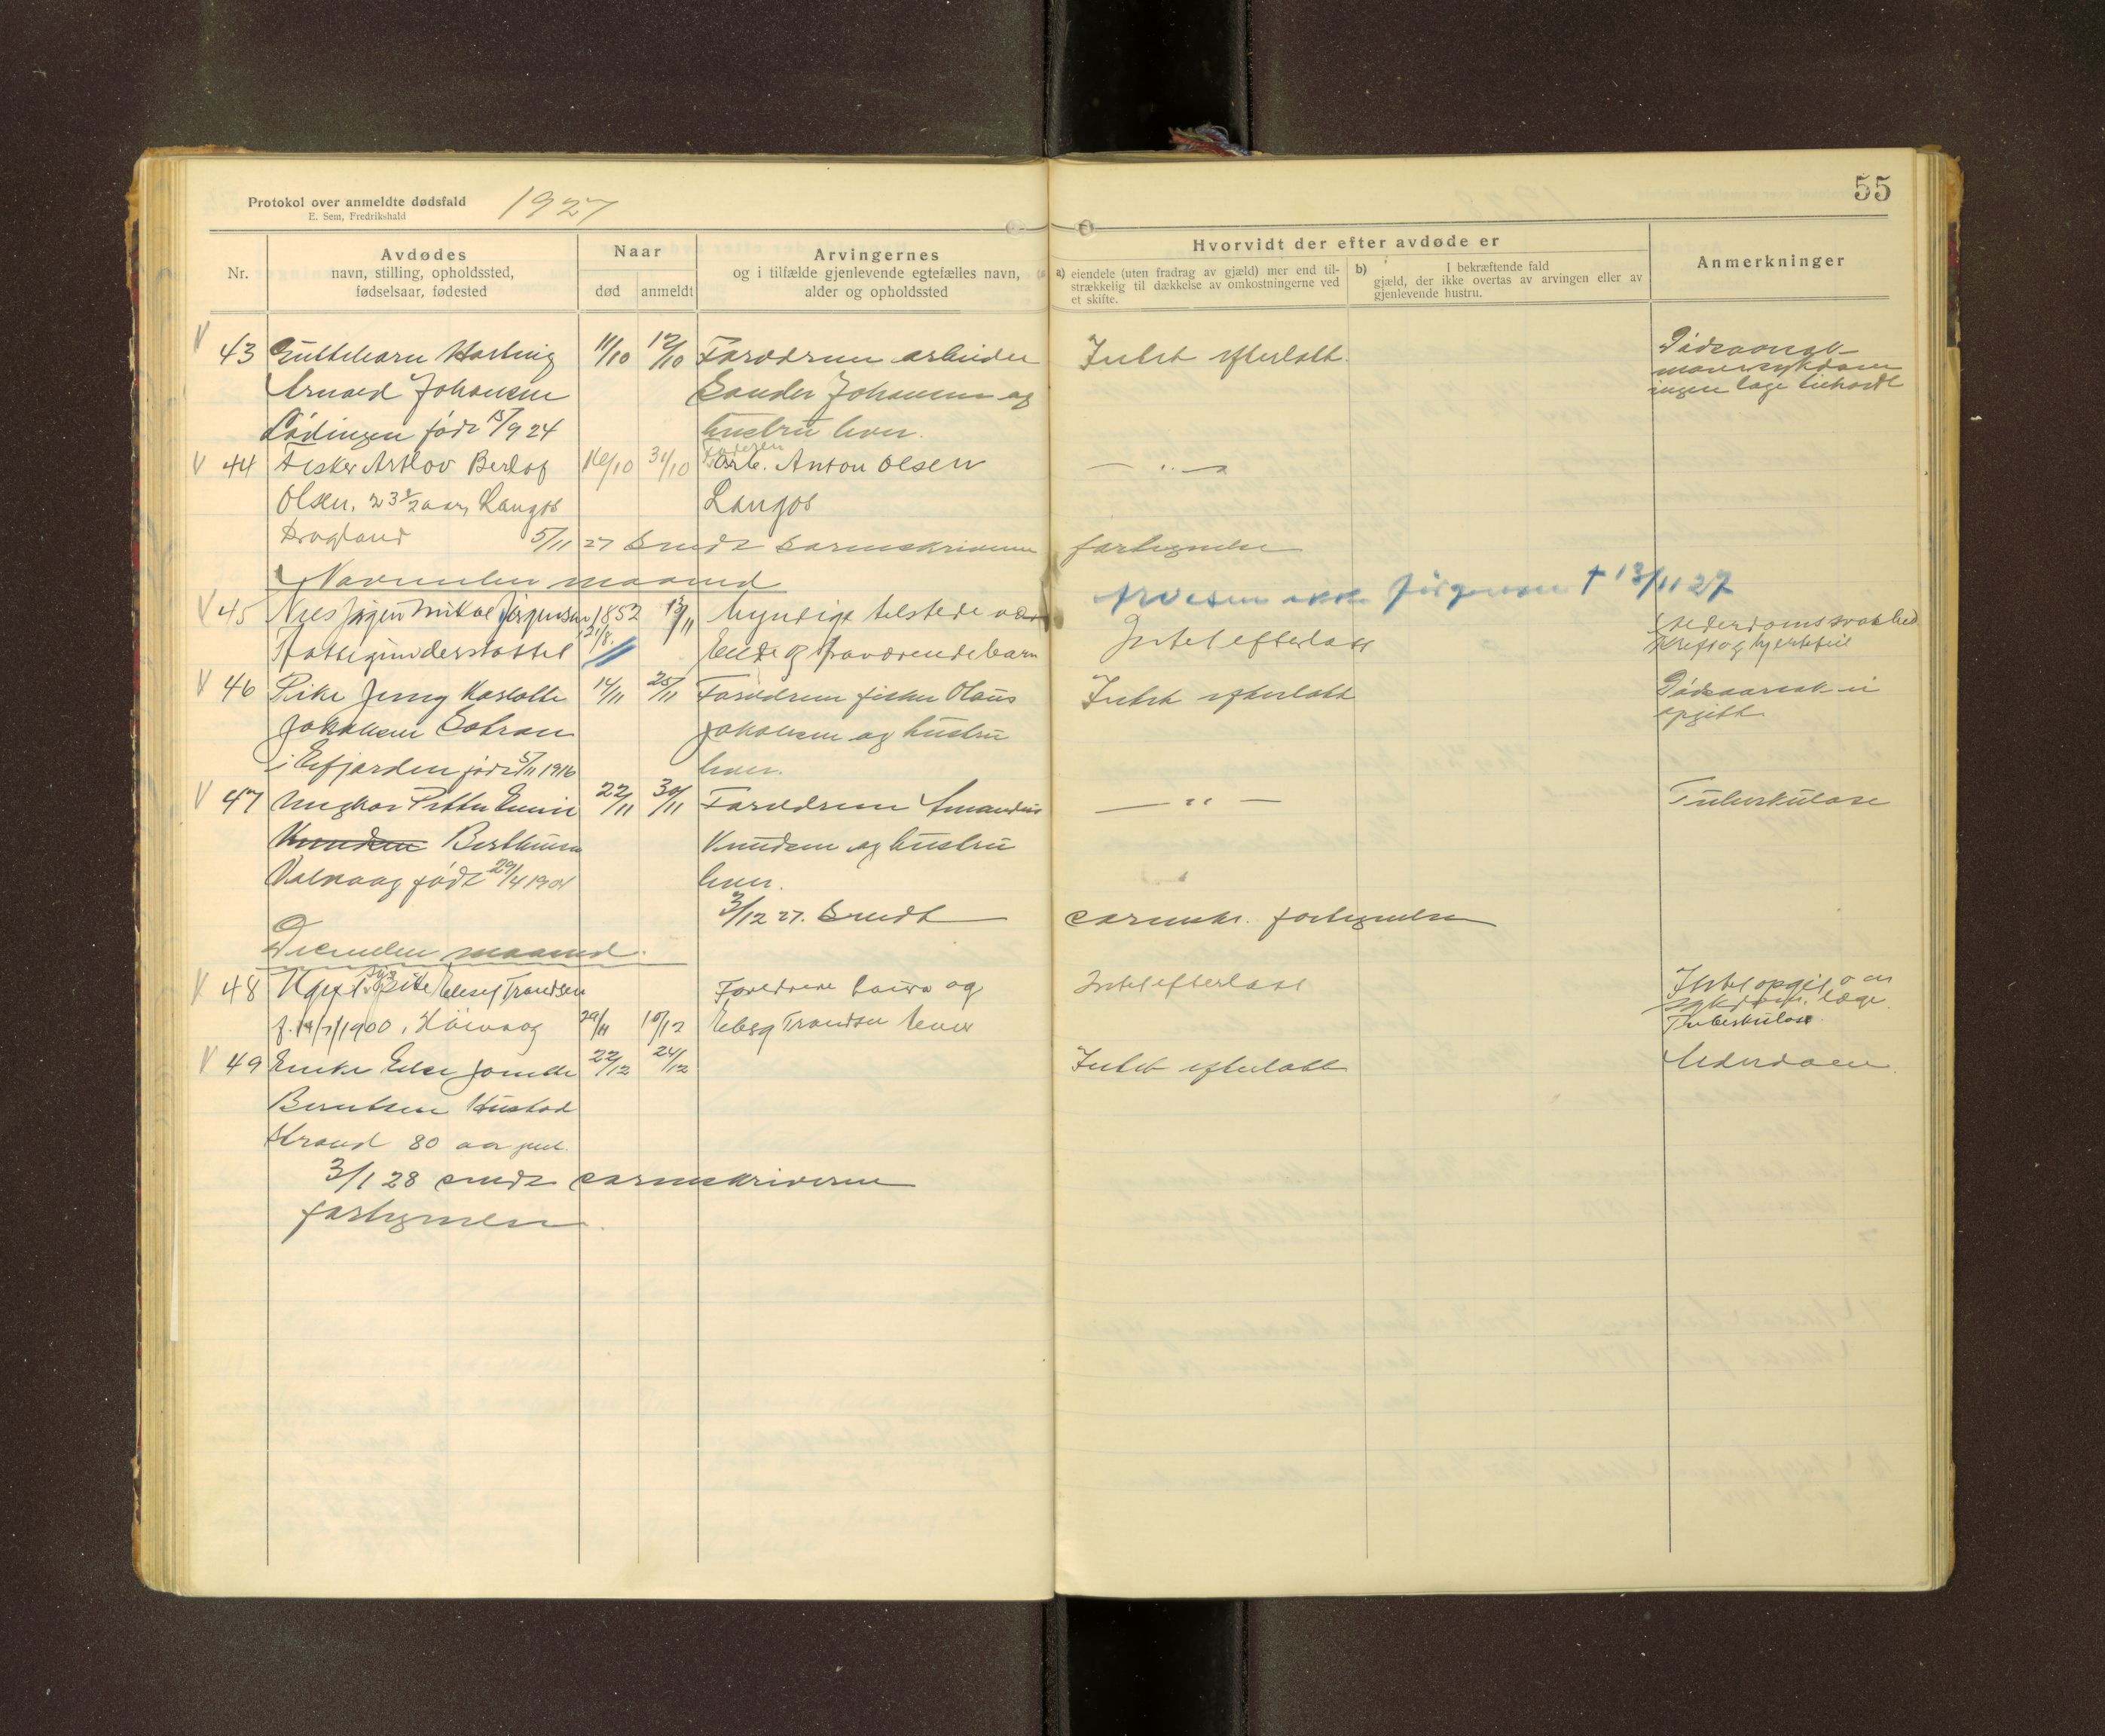 Protokol over anmeldte dødsfald
E. Sem, Fredrikshald
1927
55
Nr.
Avdødes
navn, stilling, opholdssted,
fødselsaar, fødested
Naar
død
anmeldt
Arvingernes
og i tilfælde gjenlevende egtefælles navn,
alder og opholdssted
Hvorvidt der efter avdøde er
a) eiendele (uten fradrag av gjæld) mer end til-
strækkelig til dækkelse av omkostningerne ved
et skifte.
b) I bekræftende fald
gjæld, der ikke overtas av arvingen eller av
gjenlevende hustru.
Anmerkninger
V 43 Guttebarn Harling 11/10 12/10 Forældrene arbeider Intet efterlatt. Dødsaarsak
Arnold Johansen Sander Johansen og mavesykdom
ingen læge tilkaldt
Lødingen født 15/9 24 hustru lever.
V 44 Fisker Astlov Berlof 16/10 31/10 Faderen arb. Anton Olsen — " —
Olsen, 23 1/2 aar, Langos Langos
Drogland 5/11 27 sendt sorenskriveren fortegnelse
November maaned
Arvesum Jørgensen † 13/11 27
V 45 Nils Jørgen Mikal Jørgensen 1852 21/8 19/11 Myndige tilstede vær Intet efterlatt Alderdomssvakhed
Fattigunderstøttet ende og fraværende barn kreft og hjertefeil
V 46 Pike Jenny Kaslotte 14/11 25/11 Forældrene fisker Olaus Intet efterlatt Dødsaarsak ei
opgitt
Jakobsen Sotran Jakobsen og hustru
i Efjorden født 5/11 1916 lever.
V 47 Ungkar Petter Emil 22/11 30/11 Forældrene Amandus — " — Tuberkulose
Knudsen Berthuson Knudsen og hustru
Kalvaag født 29/4 1904 lever.
3/12 27. Sendt sorenskr. fortegnelse
December maaned.
V 48 Ugift pike Elesef Trondsen Foreldrene Laura og Intet efterlatt Intet opgit om
sykdom, læge.
f. 14/7 1900, 29/11 10/12 Eberg Trondsen lever Tuberkulose
V 49 Enke Else Jomde 22/12 24/12 Intet efterlatt Alderdom
Berntsen Hustad
Strand 80 aar gml.
3/1 28 sendt sorenskriveren
fortegnelse.